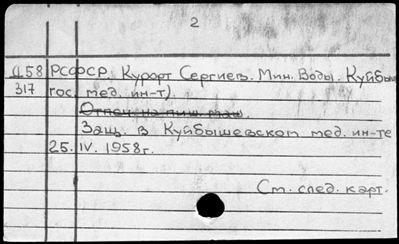 2
Д58 РСФСР. Курорт Сергиев. Мин. Воды. Куйбыш
317 гос. мед. ин-т).
Отпеч. на пиш. маш.
Защ. в Куйбышевском мед. ин-те
25.IV.1958г.
См. след. карт.